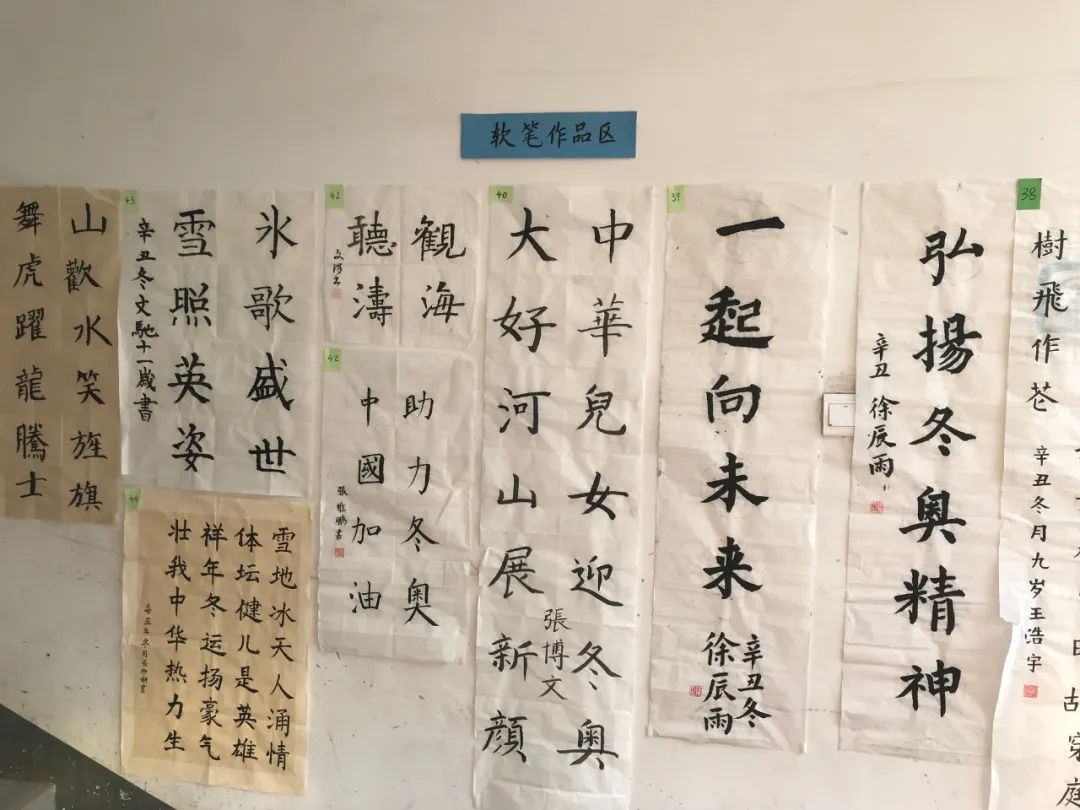 软笔作品区
38
樹飛作花
辛丑冬月九岁王浩宇
故穿庭
弘揚冬奥精神
辛丑 徐辰雨
39
一起向未来
辛丑冬
徐辰雨
40
中華兒女迎冬奥
大好河山展新顔
張博文
41
觀海
聽濤
42
助力冬奥
中國加油
張雅鵬書
43
氷歌盛世
雪照英姿
辛丑冬文馳十一歲書
44
雪地冰天人涌情
体坛健儿是英雄
祥年冬运扬豪气
壮我中华热力生
山歡水笑旌旗
舞虎躍龍騰士